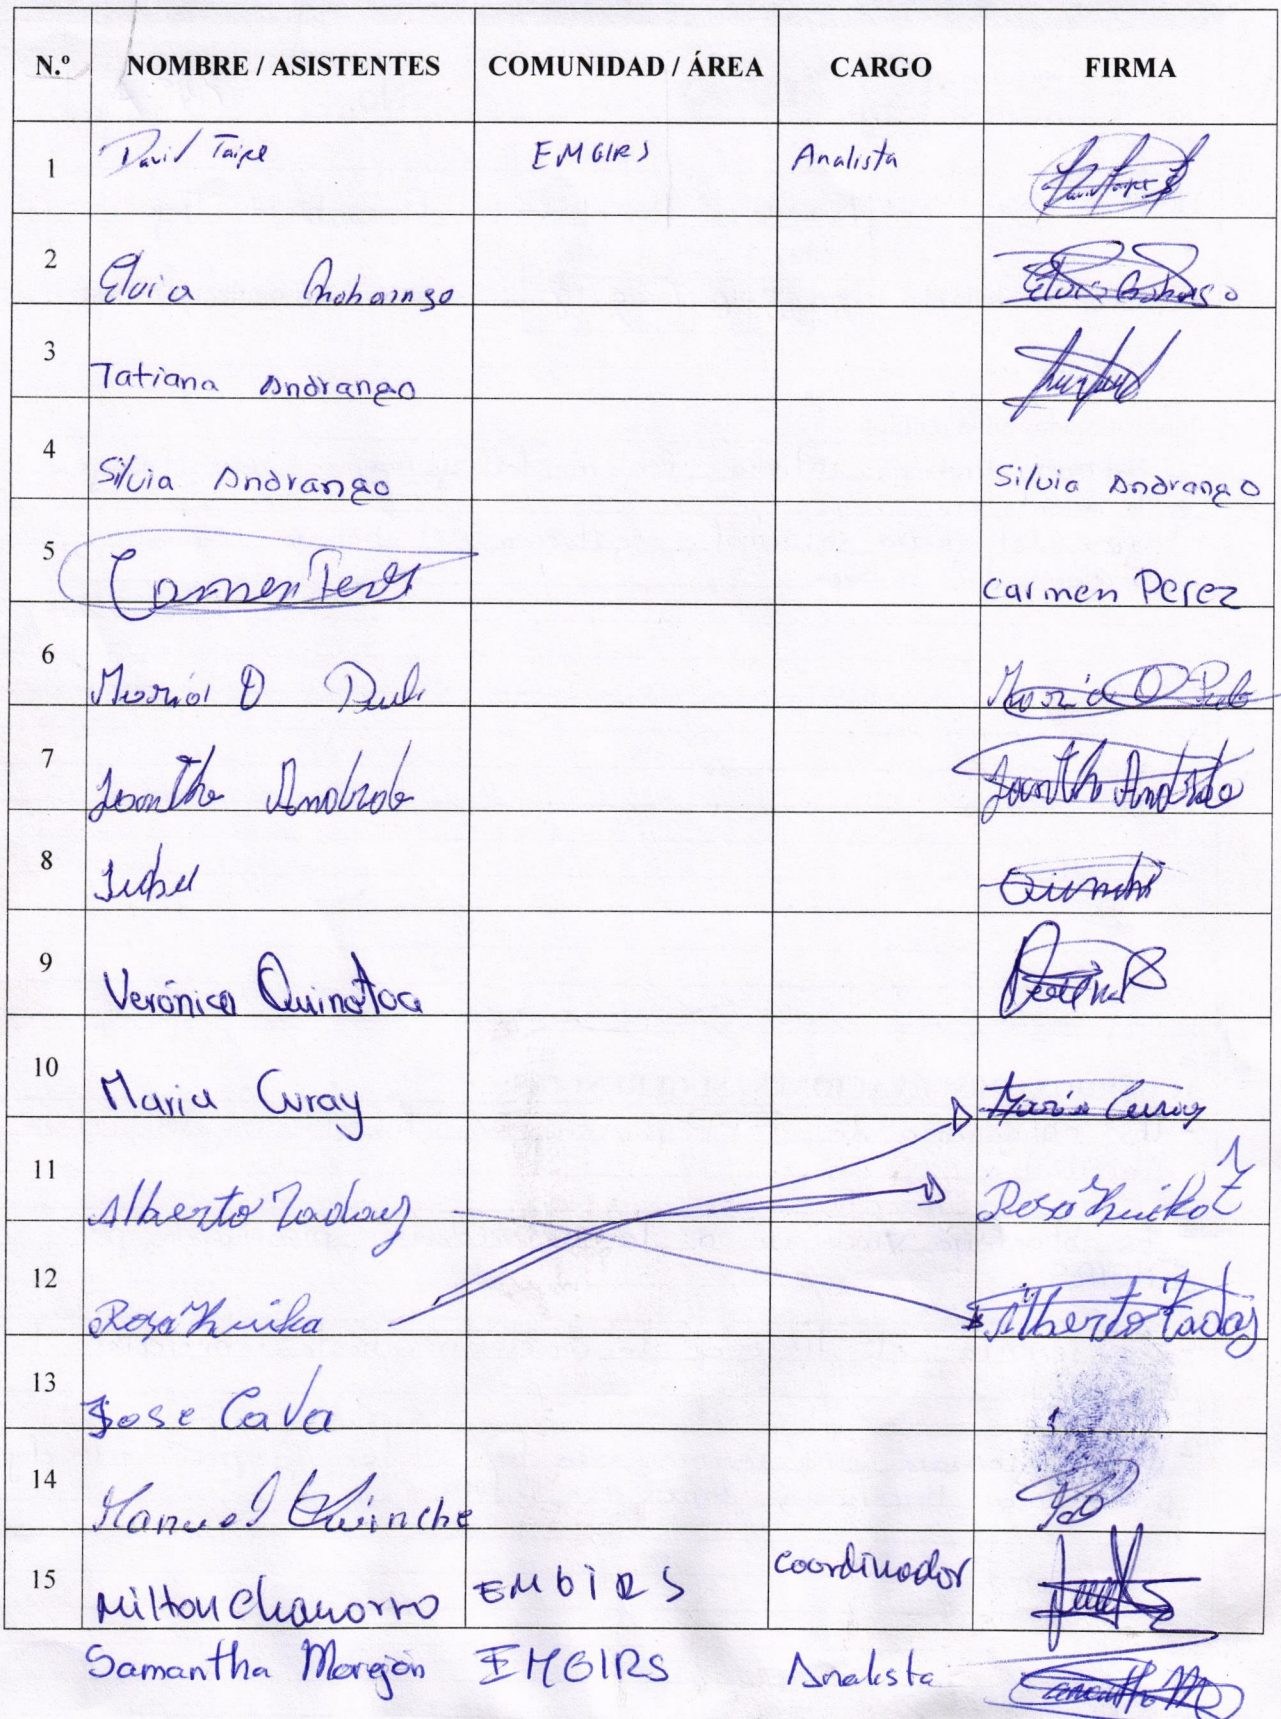 N.º NOMBRE / ASISTENTES COMUNIDAD / ÁREA CARGO FIRMA
1 David Taipe EMGIRS Analista
2 Elvia
3 Tatiana Andrango
4 Silvia Andrango Silvia Andrango
5 Carmen Perez Carmen Perez
6 Maria O Maria O
7 Andrade
8 Isabel
9 Verónica Quinatoa
10 Maria Curay Maria Curay
11 Alberto Taday Rosa
12 Rosa Alberto Taday
13 Jose Cava
14 Manuel
15 Milton Chamorro EMGIRS Coordinador
Samantha Morejón EMGIRS Analista